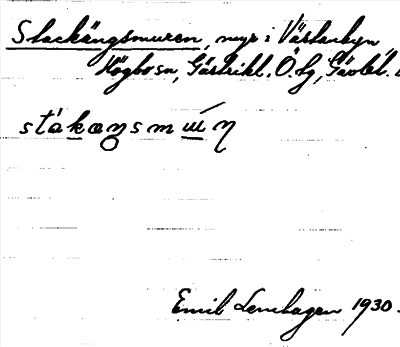 Stackängsmuren, myr i Västerbyn
Högbo sn, Gästrikl. Ö. hg, Gävlebl.
stákaŋsmɯ́ŋ
Emil Lenhagen 1930.